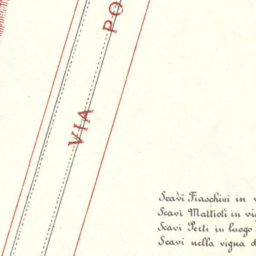 VIA PO
Scavi Fiaschini in
Scavi Mattioli in vi
Scavi Perti in luogo
Scavi nella vigna d